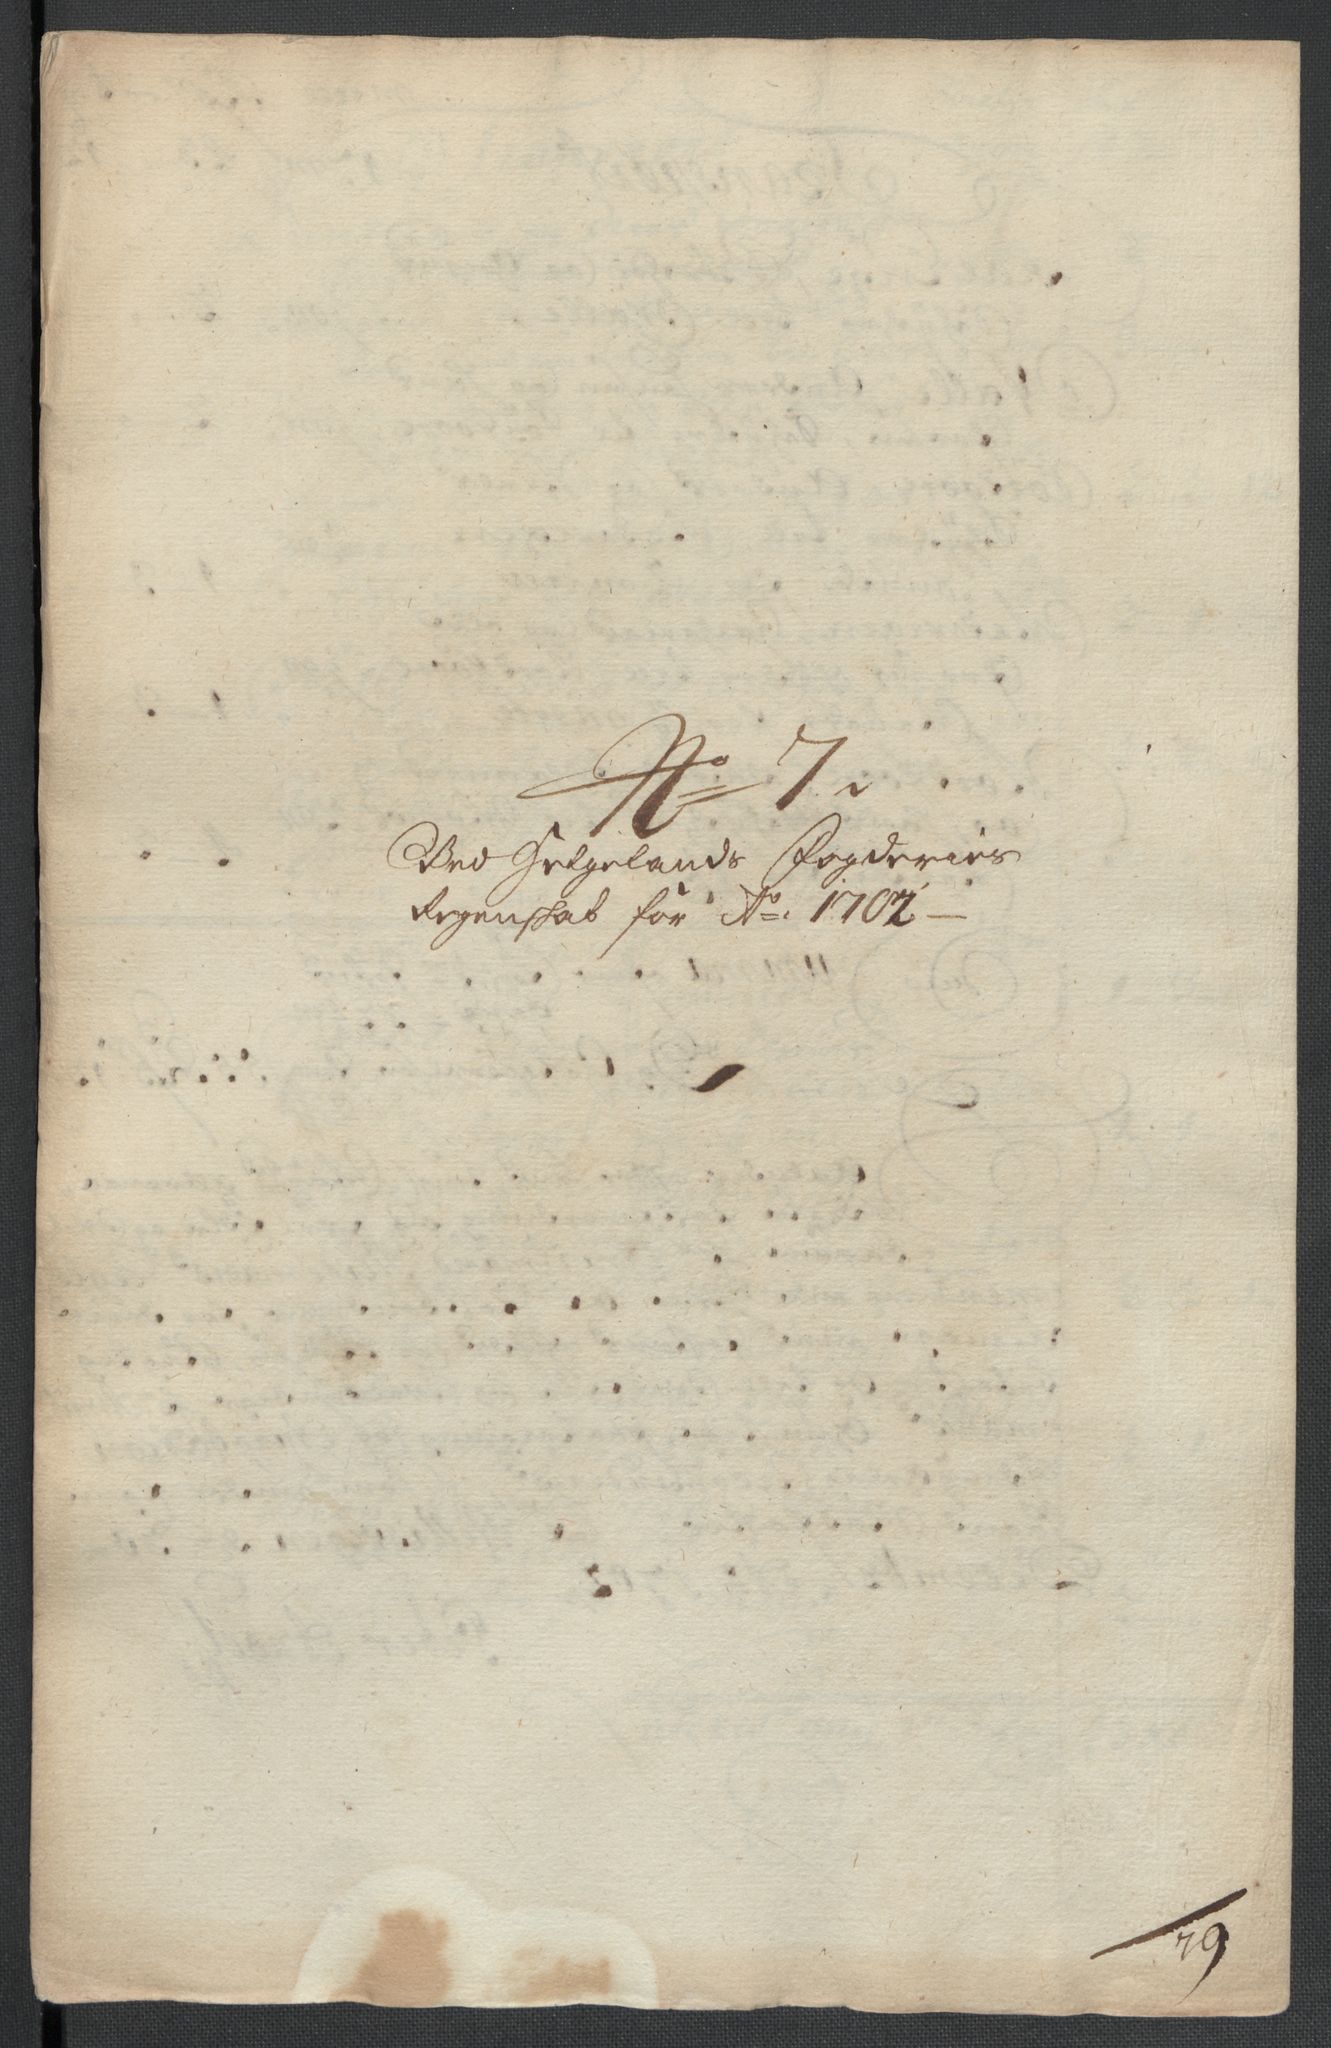 No 7.
Ved Helgelands Fogderies
Regenskab for Ao. 1702
79